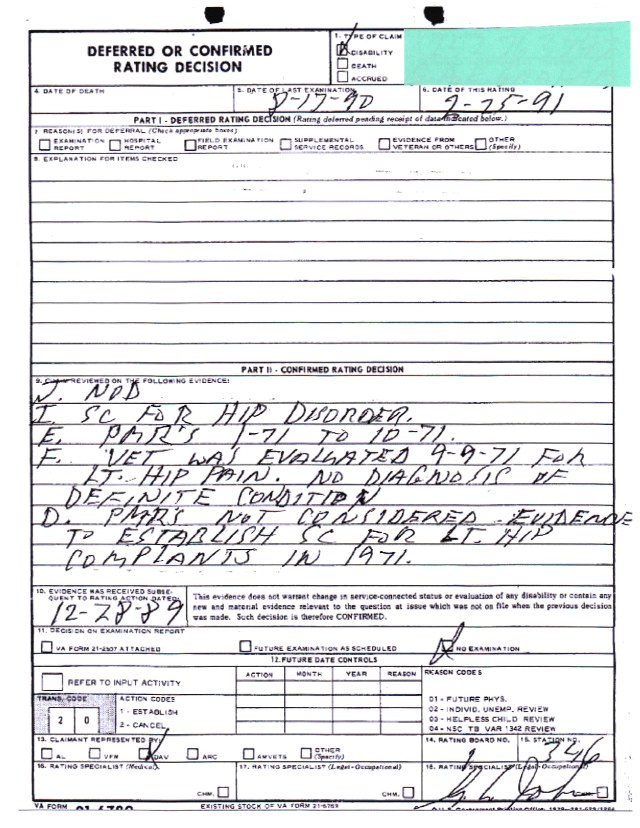 DEFERRED OR CONFIRMED
RATING DECISION
1. TYPE OF CLAIM
DISABILITY
DEATH
ACCRUED
4. DATE OF DEATH
5. DATE OF LAST EXAMINATION
8-17-90
6. DATE OF THIS RATING
2-25-91
PART I - DEFERRED RATING DECISION (Rating deferred pending receipt of data indicated below.)
7 REASON(S) FOR DEFERRAL (Check appropriate boxes)
EXAMINATION REPORT
HOSPITAL REPORT
FIELD EXAMINATION REPORT
SUPPLEMENTAL SERVICE RECORDS
EVIDENCE FROM VETERAN OR OTHERS
OTHER (Specify)
8. EXPLANATION FOR ITEMS CHECKED
PART II - CONFIRMED RATING DECISION
9. REVIEWED ON THE FOLLOWING EVIDENCE:
J. NOD
I. SC FOR HIP DISORDER.
E. PMR'S 1-71 TO 10-71.
F. VET WAS EVALUATED 9-9-71 FOR
LT. HIP PAIN. NO DIAGNOSIS OF
DEFINITE CONDITION
D. PMR'S NOT CONSIDERED EVIDENCE
TO ESTABLISH SC FOR LT. HIP
COMPLANTS IN 1971.
10. EVIDENCE WAS RECEIVED SUBSE-
QUENT TO RATING ACTION DATED:
12-28-89
This evidence does not warrant change in service-connected status or evaluation of any disability or contain any
new and material evidence relevant to the question at issue which was not on file when the previous decision
was made. Such decision is therefore CONFIRMED.
11. DECISION ON EXAMINATION REPORT
VA FORM 21-2507 ATTACHED
FUTURE EXAMINATION AS SCHEDULED
NO EXAMINATION
12. FUTURE DATE CONTROLS
REFER TO INPUT ACTIVITY
ACTION MONTH YEAR REASON
REASON CODES
TRANS. CODE
2 0
ACTION CODES
1 - ESTABLISH
2 - CANCEL
01 - FUTURE PHYS.
02 - INDIVID. UNEMP. REVIEW
03 - HELPLESS CHILD REVIEW
04 - NSC TB VAR 1342 REVIEW
13. CLAIMANT REPRESENTED BY
AL VFW DAV ARC AMVETS OTHER (Specify)
14. RATING BOARD NO.
15. STATION NO.
346
16. RATING SPECIALIST (Medical)
CHM.
17. RATING SPECIALIST (Legal-Occupational)
CHM.
18. RATING SPECIALIST (Legal-Occupational)
VA FORM 21-6789
EXISTING STOCK OF VA FORM 21-6789